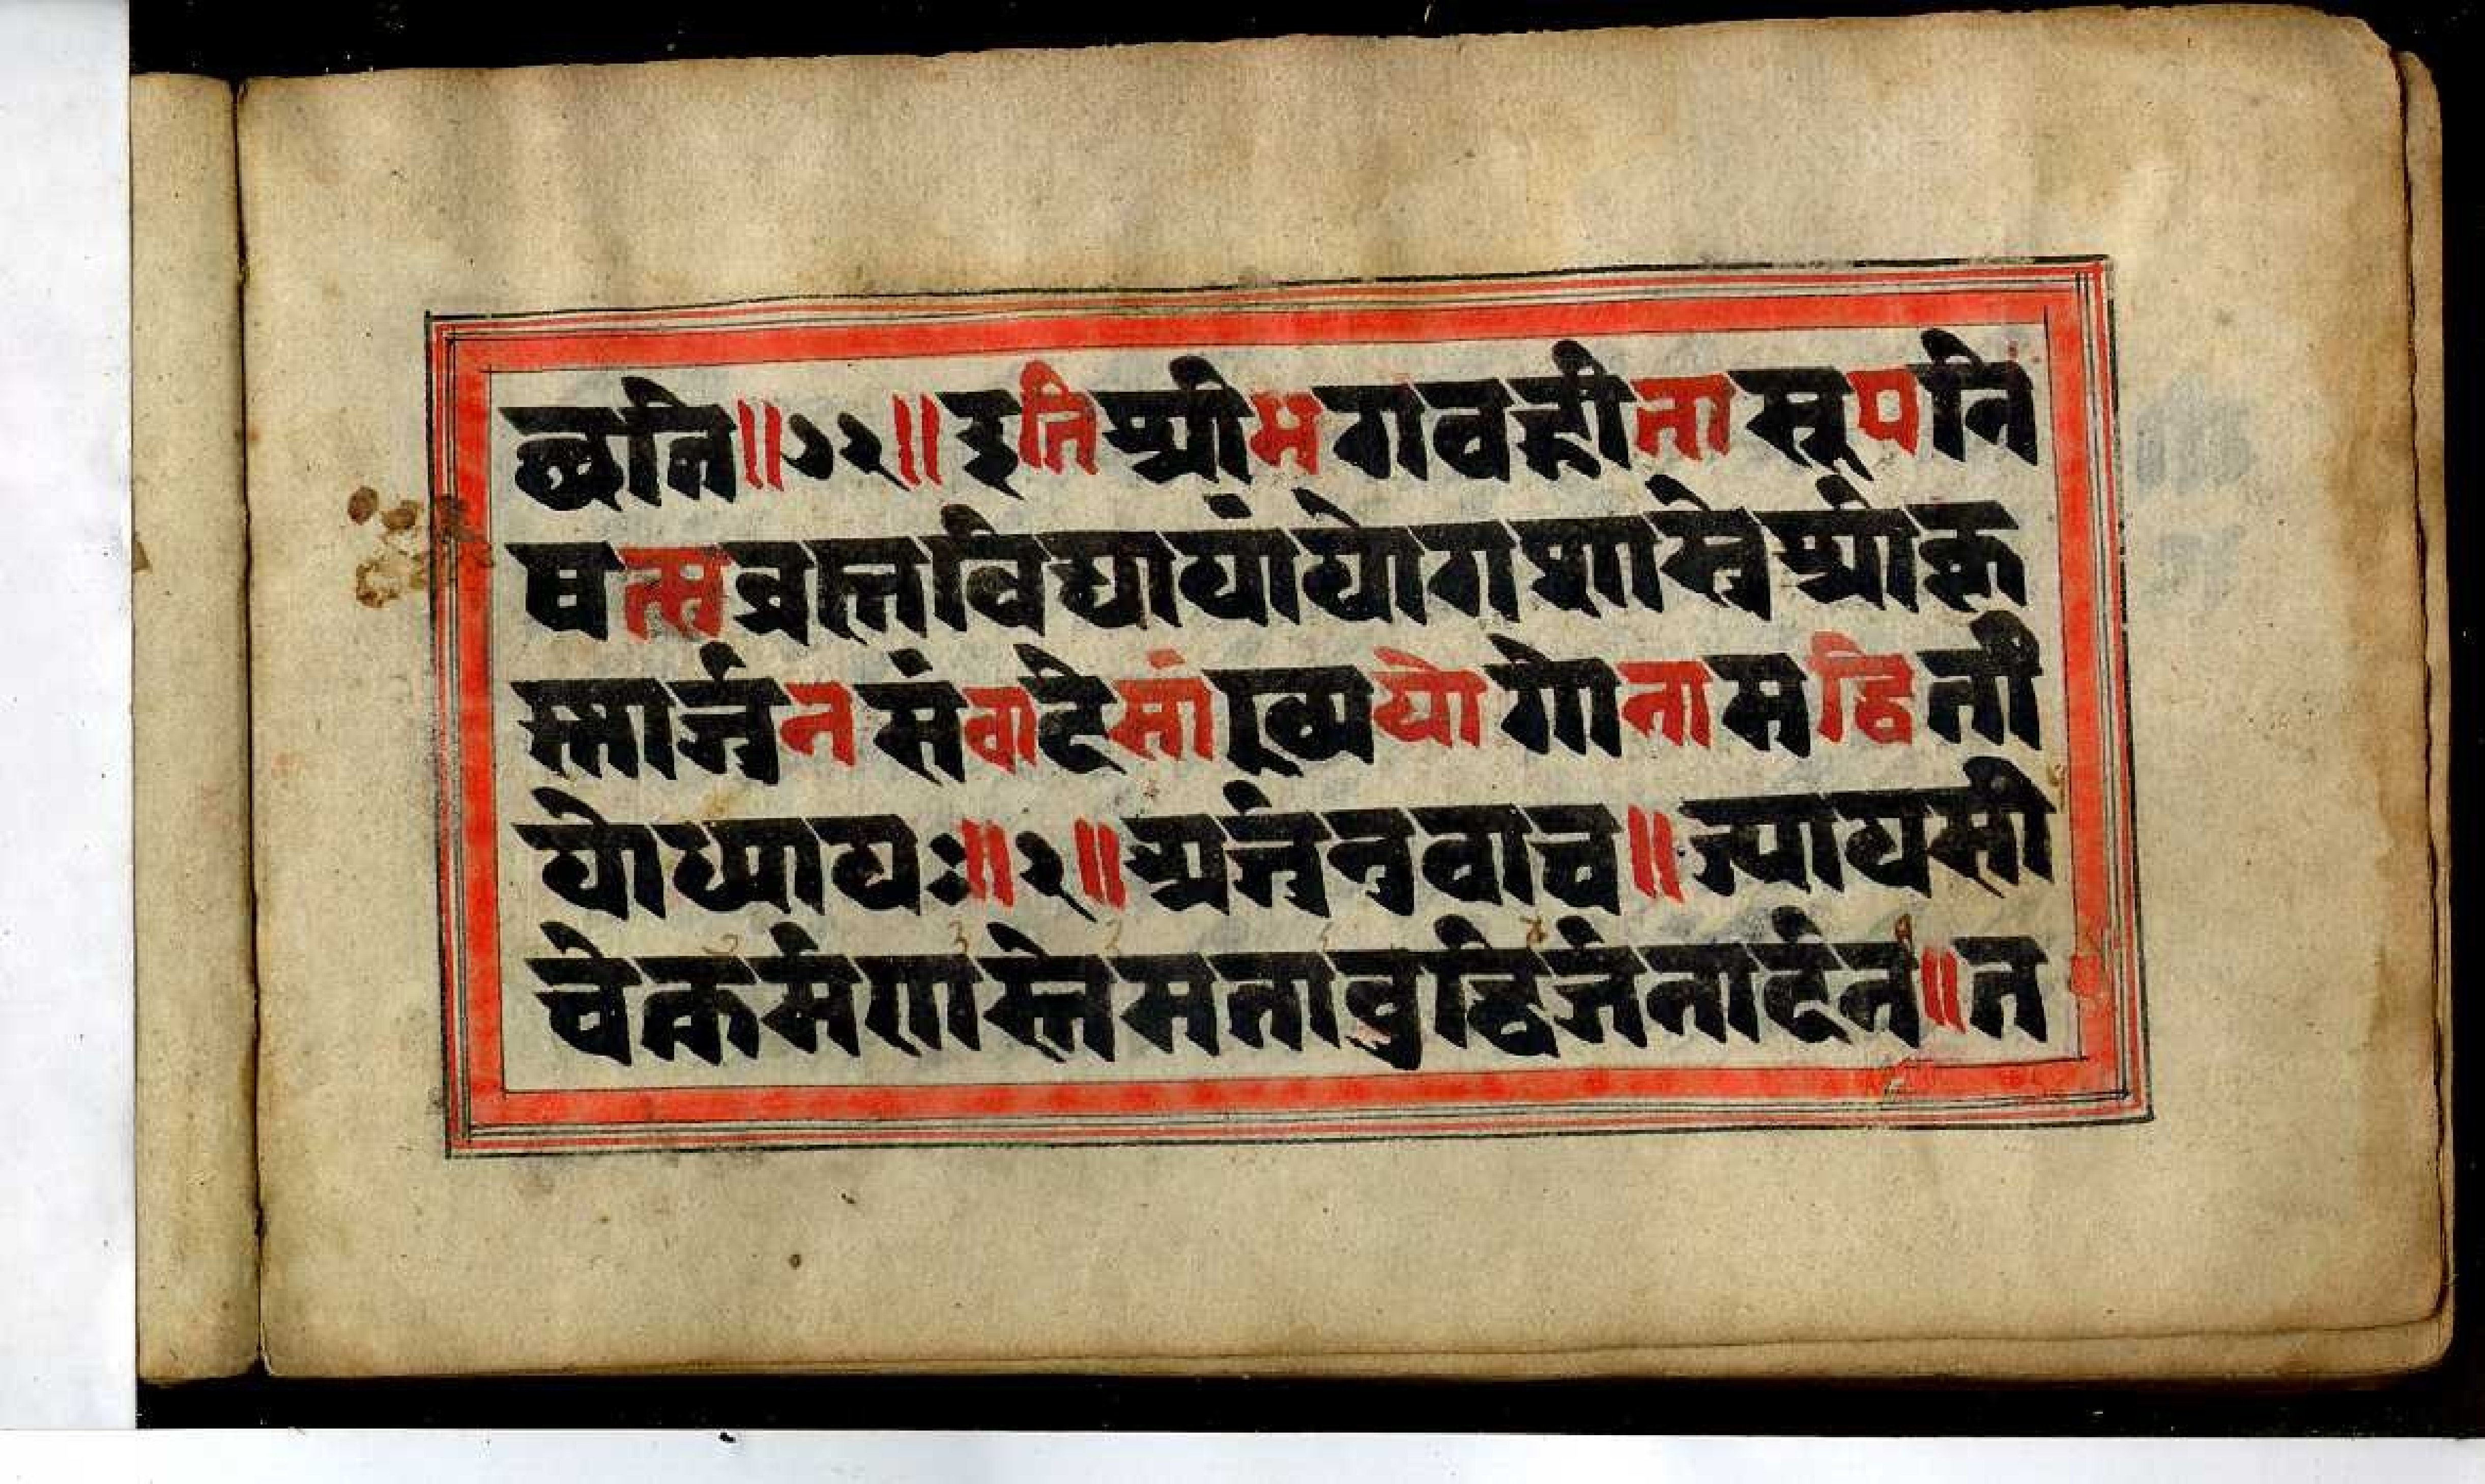 छति॥७२॥इतिश्रीभगवद्गीतासूपनि
षत्सब्रह्मविद्यायांयोगशास्त्रेश्रीकृ
स्मार्जनसंवादेसांख्ययोगोनामद्विती
योध्यायः॥२॥अर्जनउवाच॥ज्यायसी
चेत्कर्मणास्तेमताबुद्धिर्जनार्दन॥त